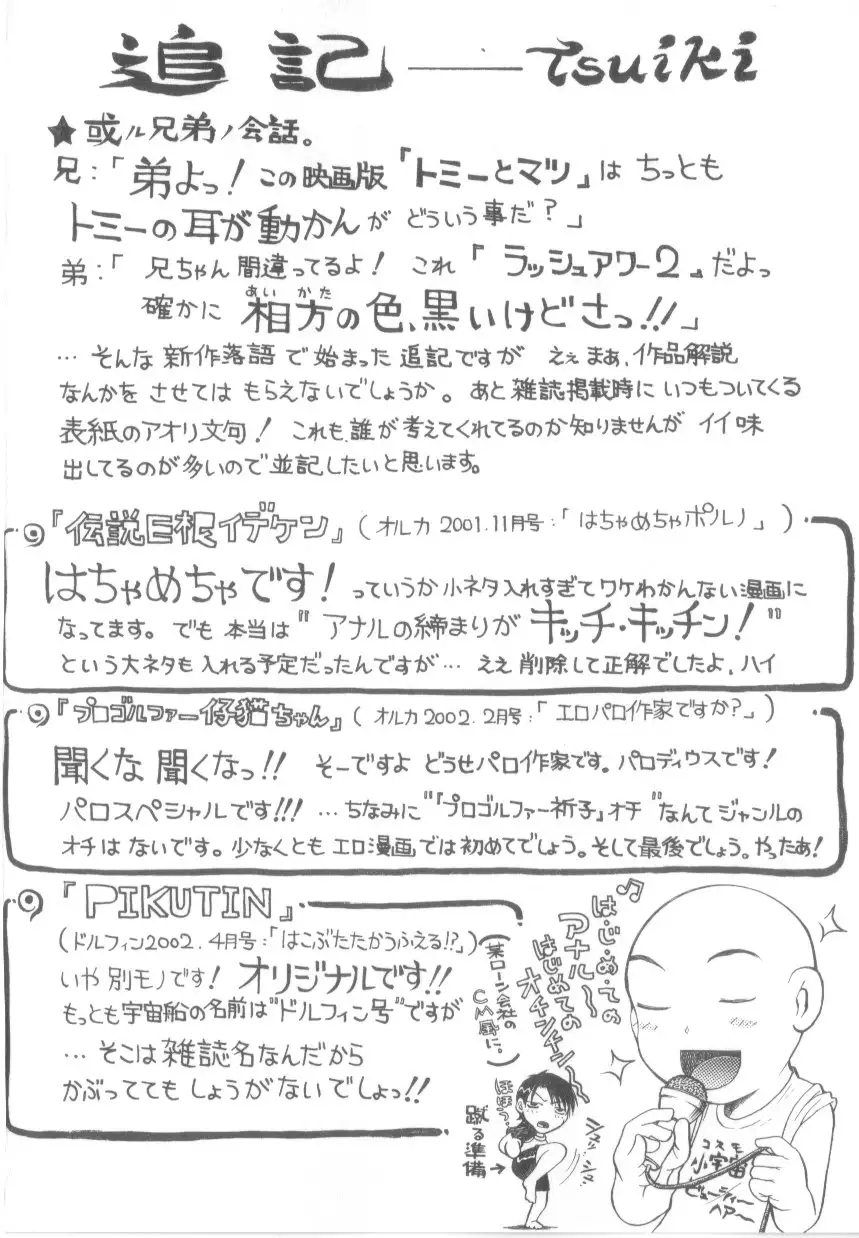 追記 ― tsuiki
★或ル兄弟ノ会話。
兄:「弟よっ! この映画版「トミーとマツ」は ちっとも
トミーの耳が動かんが どういう事だ?」
弟:「兄ちゃん間違ってるよ! これ「ラッシュアワー2」だよっ
あい かた
確かに 相方の色、黒いけどさっ!!」
… そんな 新作落語 で始まった 追記ですが ええ まあ、作品解説
なんかを させては もらえないでしょうか。あと 雑誌掲載時に いつもついてくる
表紙のアオリ文句! これも、誰が考えてくれてるのか知りませんが イイ味
出してるのが多いので並記したいと思います。
『伝説巨根イデケン』(オルカ 2001.11月号:「はちゃめちゃポルノ」)
はちゃめちゃです! っていうか小ネタ入れすぎてワケわかんない漫画に
なってます。でも 本当は "アナルの締まりが キッチ・キッチン!"
という大ネタも入れる予定だったんですが… ええ 削除して正解でしたよ、ハイ
『プロゴルファー仔猫ちゃん』(オルカ2002.2月号:「エロパロ作家ですか?」)
聞くな 聞くなっ!! そーですよ どうせパロ作家です。パロディウスです!
パロスペシャルです!!! …ちなみに"『プロゴルファー祈子』オチ"なんてジャンルの
オチは ないです。少なくとも エロ漫画では初めてでしょう。そして最後でしょう。やったあ!
『PIKUTIN』
(ドルフィン2002.4月号:「はこぶたたかうふえる!?」)
いや 別モノです! オリジナルです!!
もっとも宇宙船の名前は"ドルフィン号"ですが
… そこは雑誌名なんだから
かぶってても しょうがないでしょっ!!
♪は・じ・め・ての
アナル〜
はじめての
オチンチン〜
(某ローン会社の
CM風に。)
蹴る準備→
コスモ
小宇宙
ビューティー
ヘアー